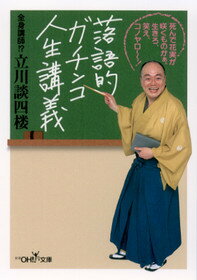 死んで花実が
咲くものかぁ。
生きろ、
笑え、
コノヤロー！
落語的
ガチンコ
人生講義
全身講師!?
立川談四楼
OH!文庫